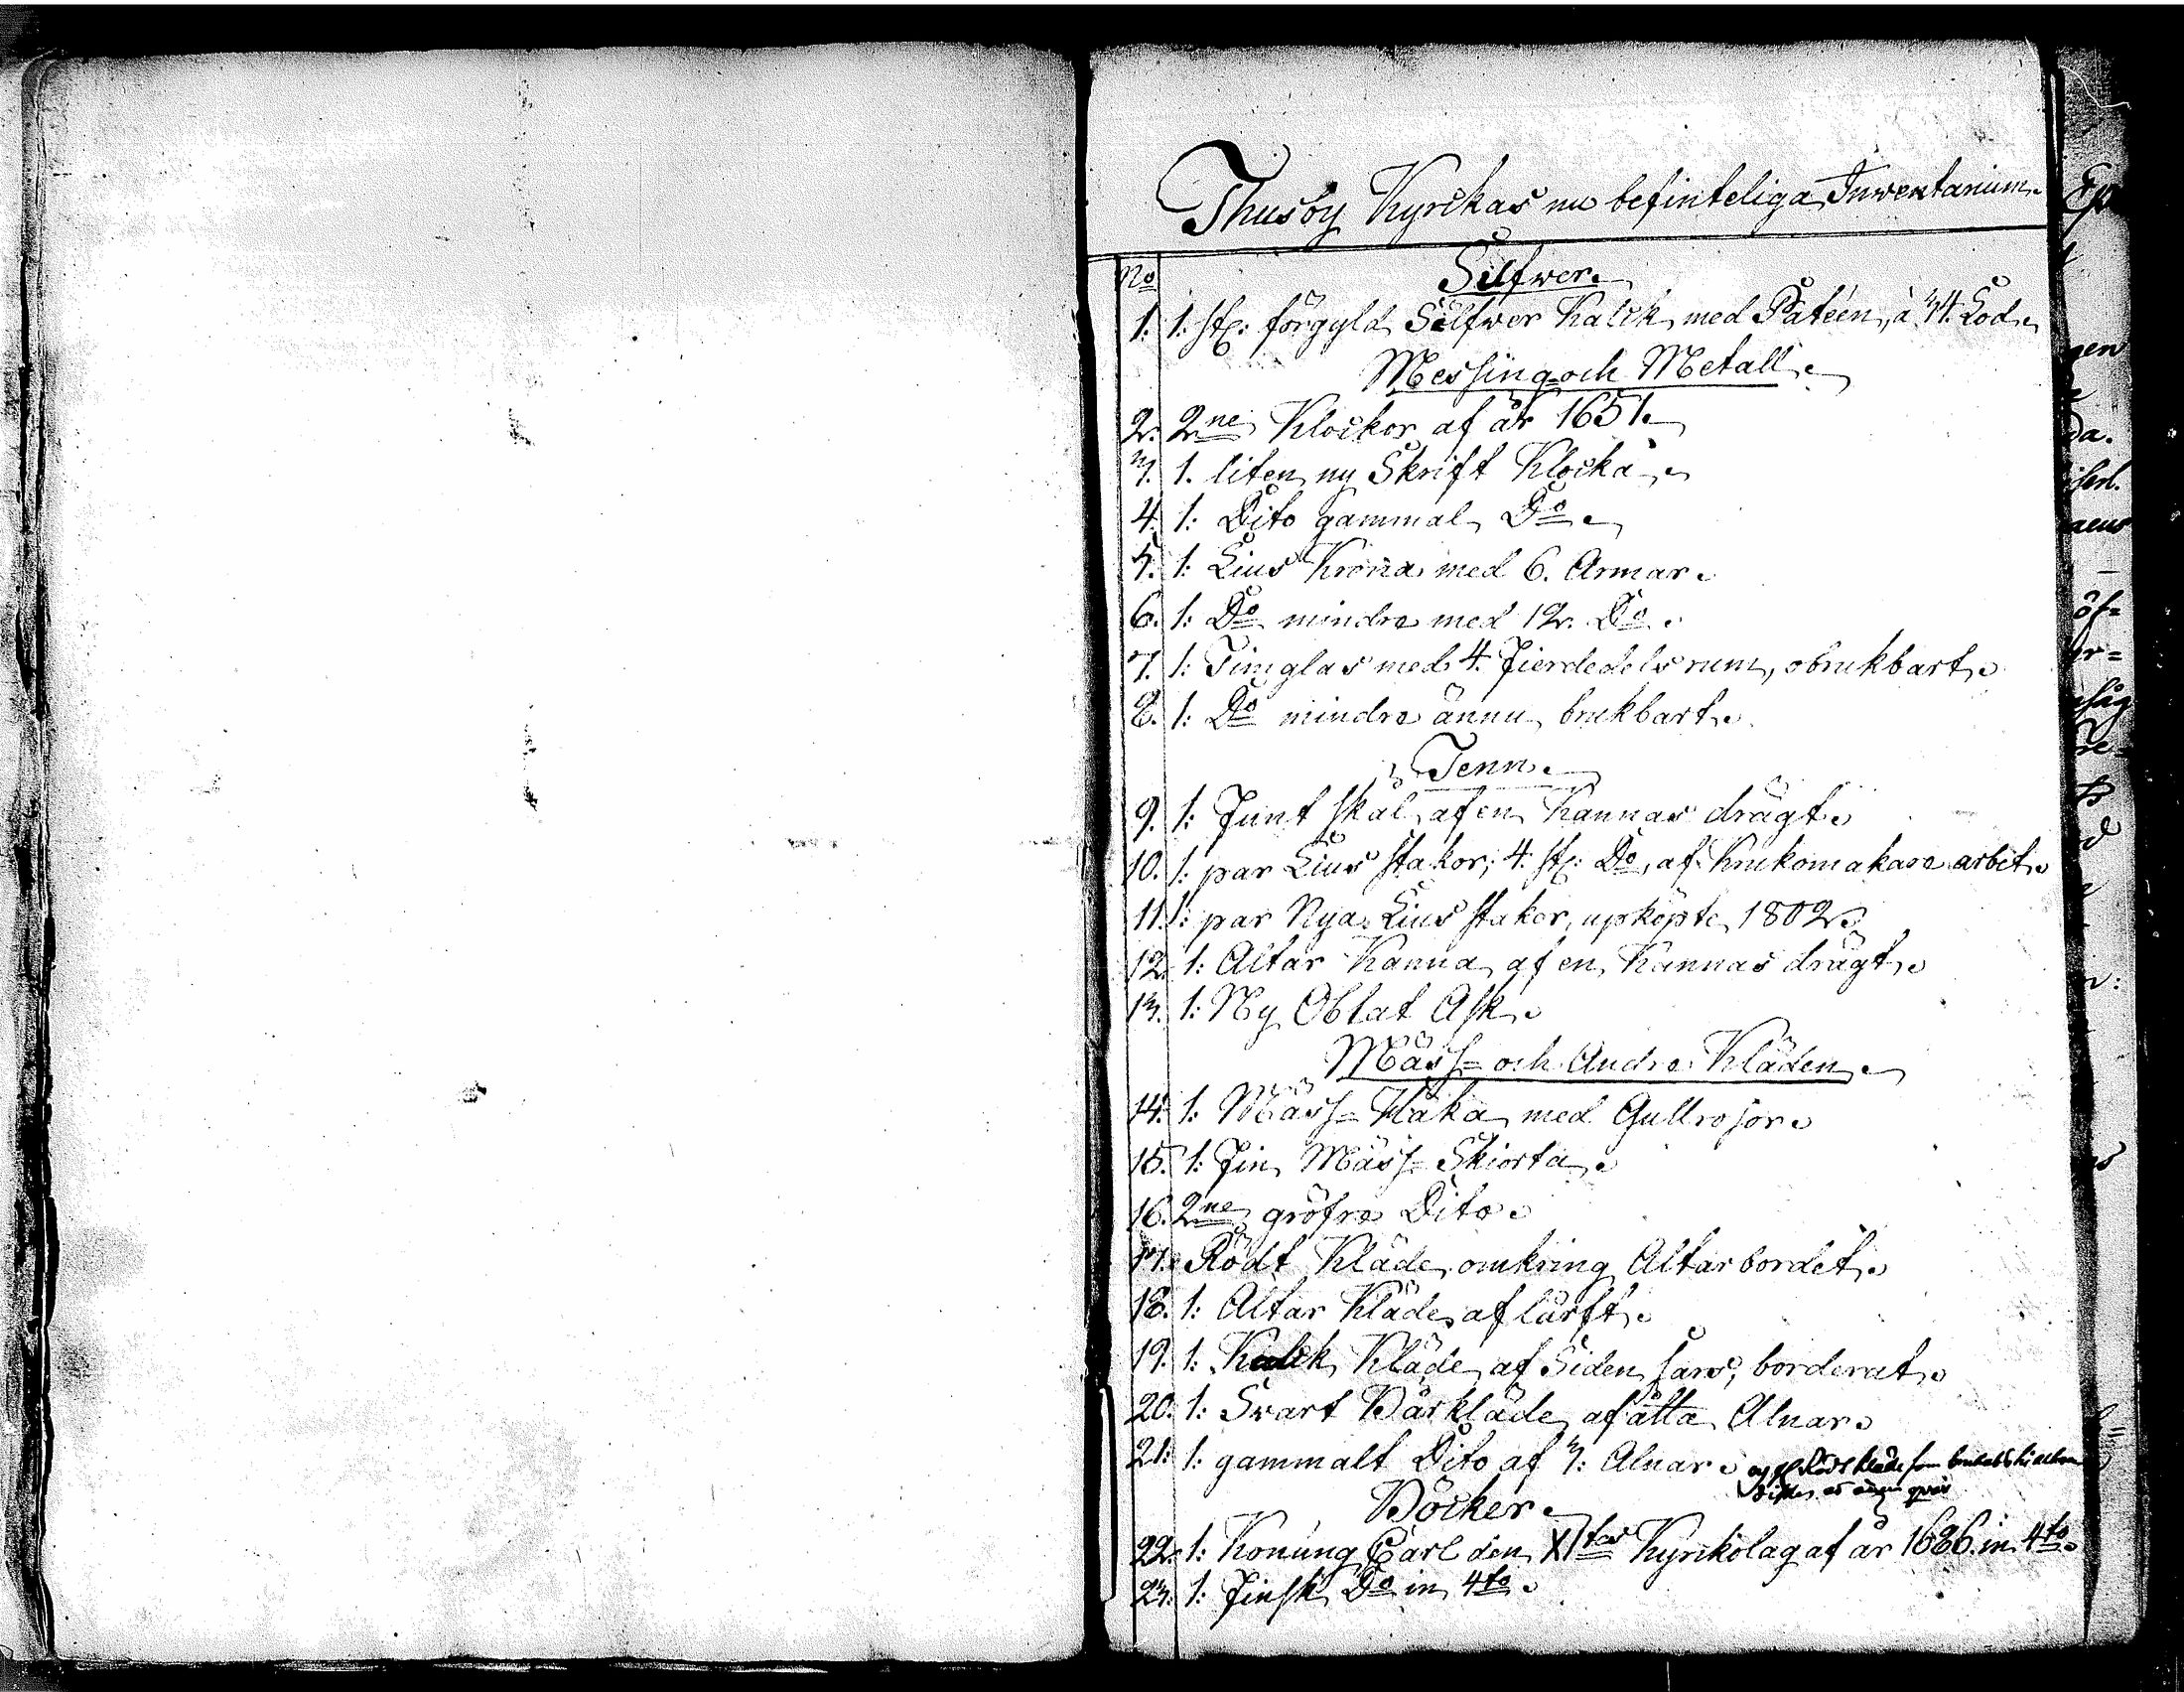 Thusby Kyrckas nu befinteliga Inwentarium.
No Silfwer.
1. 1: st: förgyld Silfwer Kalck med Patéen, à 34. Lod.
Messing- och Metall.
2. 2ne Klockor af år 1651.
3. 1. liten ny Skrift Klocka.
4. 1: Dito gammal Do.
5. 1: Lius Krona med 6. Armar.
6. 1: Do mindre med 12. Do.
7. 1: Timglas med 4. Fierdedels rum, obrukbart.
8. 1: Do mindre ännu brukbart.
Tenn.
9. 1: Funt skål af en Kannas drägt.
10. 1: par Lius stakor; 4. st: Do, af Krukomakare arbet.
11. 1: par Nya Lius stakor, upköpte 1802.
12. 1: Altar Kanna af en Kannas drägt.
13. 1: Ny Oblat Ask.
Mäss- och Andre Kläden.
14. 1: Mäss-Haka med Gullrosor.
15. 1: Fin Mäss-Skiorta.
16. 2ne gröfre Dito.
17. Rödt Kläde omkring Altarbordet.
18. 1: Altar Kläde af lärft.
19. 1: Kalck Kläde af Siden sars, borderat.
20. 1: Svart Bårkläde af åtta Alnar.
21. 1: gammalt Dito af 3: Alnar. Rödt kläde som
Böcker.
22. 1: Konung Carl den XItes Kyrkolag af år 1686. in 4to.
23. 1: Finsk Do in 4to.
gen
da.
öf=
er=